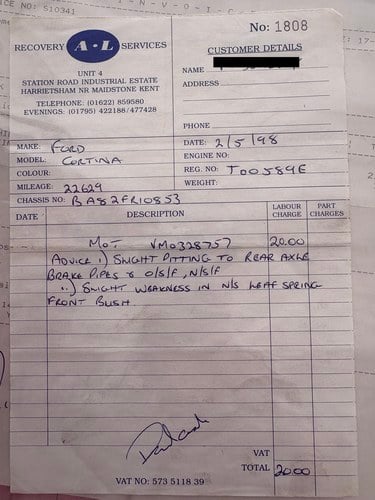 CE NO: S10341
I - N - V - O - I - C
No: 1808
RECOVERY A·L SERVICES
CUSTOMER DETAILS
UNIT 4
STATION ROAD INDUSTRIAL ESTATE
HARRIETSHAM NR MAIDSTONE KENT
NAME
ADDRESS
TELEPHONE: (01622) 859580
EVENINGS: (01795) 422188/477428
PHONE
MAKE: FORD
DATE: 2/5/98
MODEL: CORTINA
ENGINE NO:
COLOUR:
REG. NO: TOO589E
MILEAGE: 22629
WEIGHT:
CHASSIS NO: BA82FR10853
DATE DESCRIPTION LABOUR CHARGE PART CHARGES
MOT VM0328757 20.00
ADVICE i) SLIGHT PITTING TO REAR AXLE
BRAKE PIPES & O/S/F, N/S/F
ii) SLIGHT WEAKNESS IN N/S LEAF SPRING
FRONT BUSH
VAT
TOTAL 20.00
VAT NO: 573 5118 39